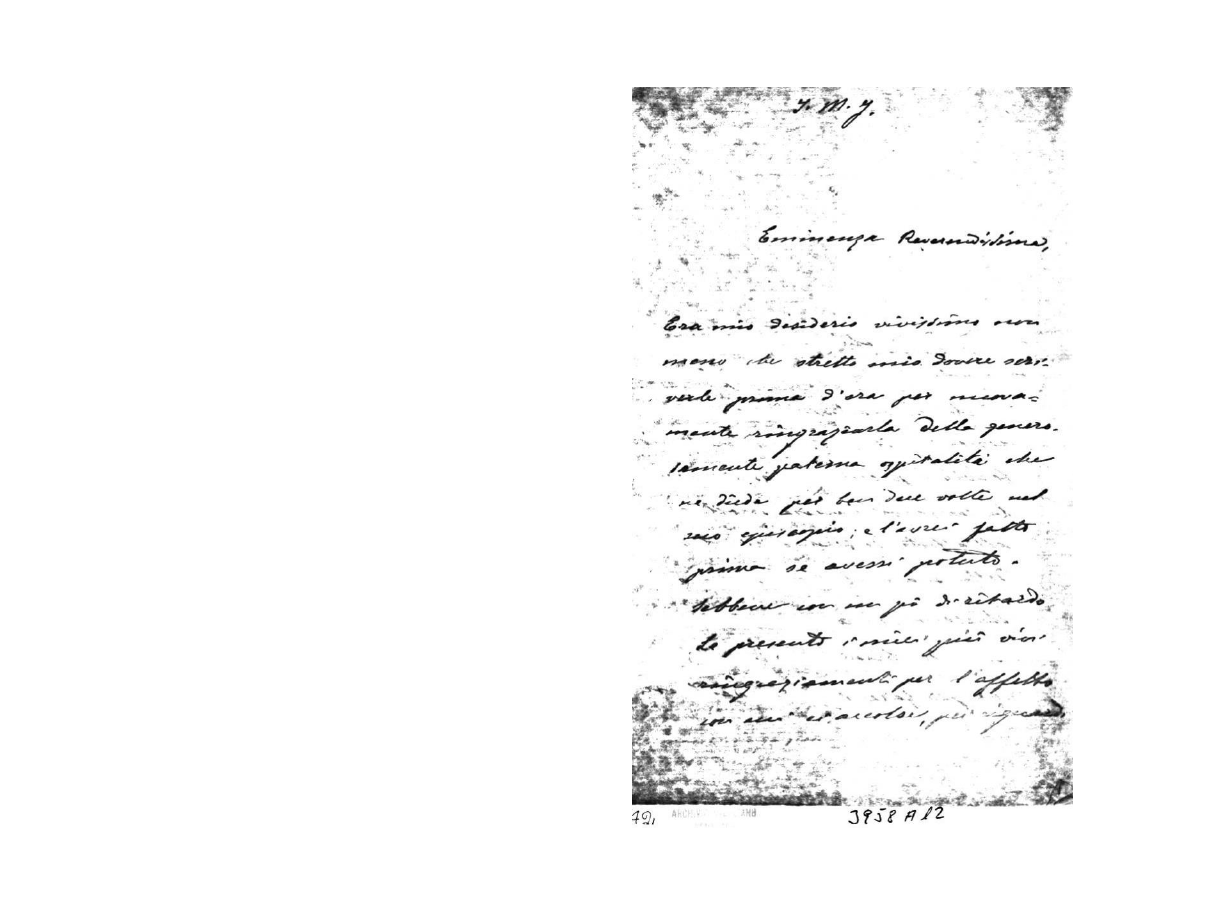 J. M. J.
Eminenza Reverendissima,
Era mio desiderio vivissimo non
meno che stretto mio dovere scri-
verle prima d'ora per nuova=
mente ringraziarla della genero-
samente paterna ospitalità che
ne diede per ben due volte nel
suo episcopio; e l'avrei fatto
prima se avessi potuto.
Sebbene con un pò di ritardo
Le presento i miei più vivi
ringraziamenti per l'affetto
con cui ci accolse, pei riguardi
3958 A12